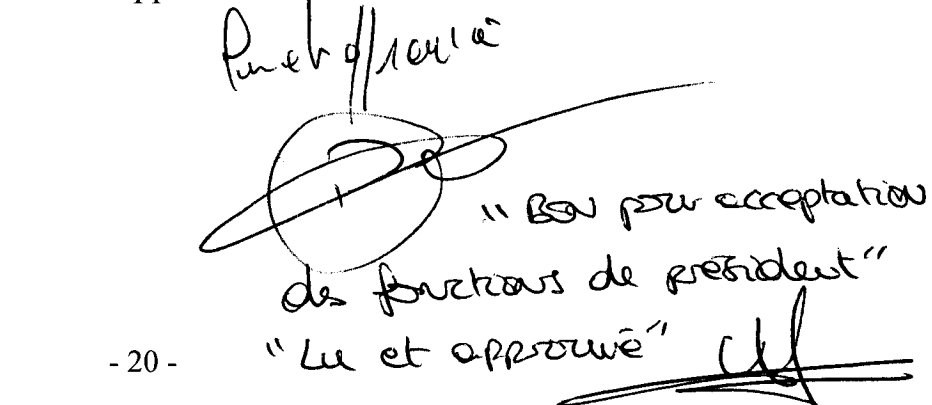 "Bon pour acceptation
des fonctions de président"
"Lu et approuvé"
- 20 -